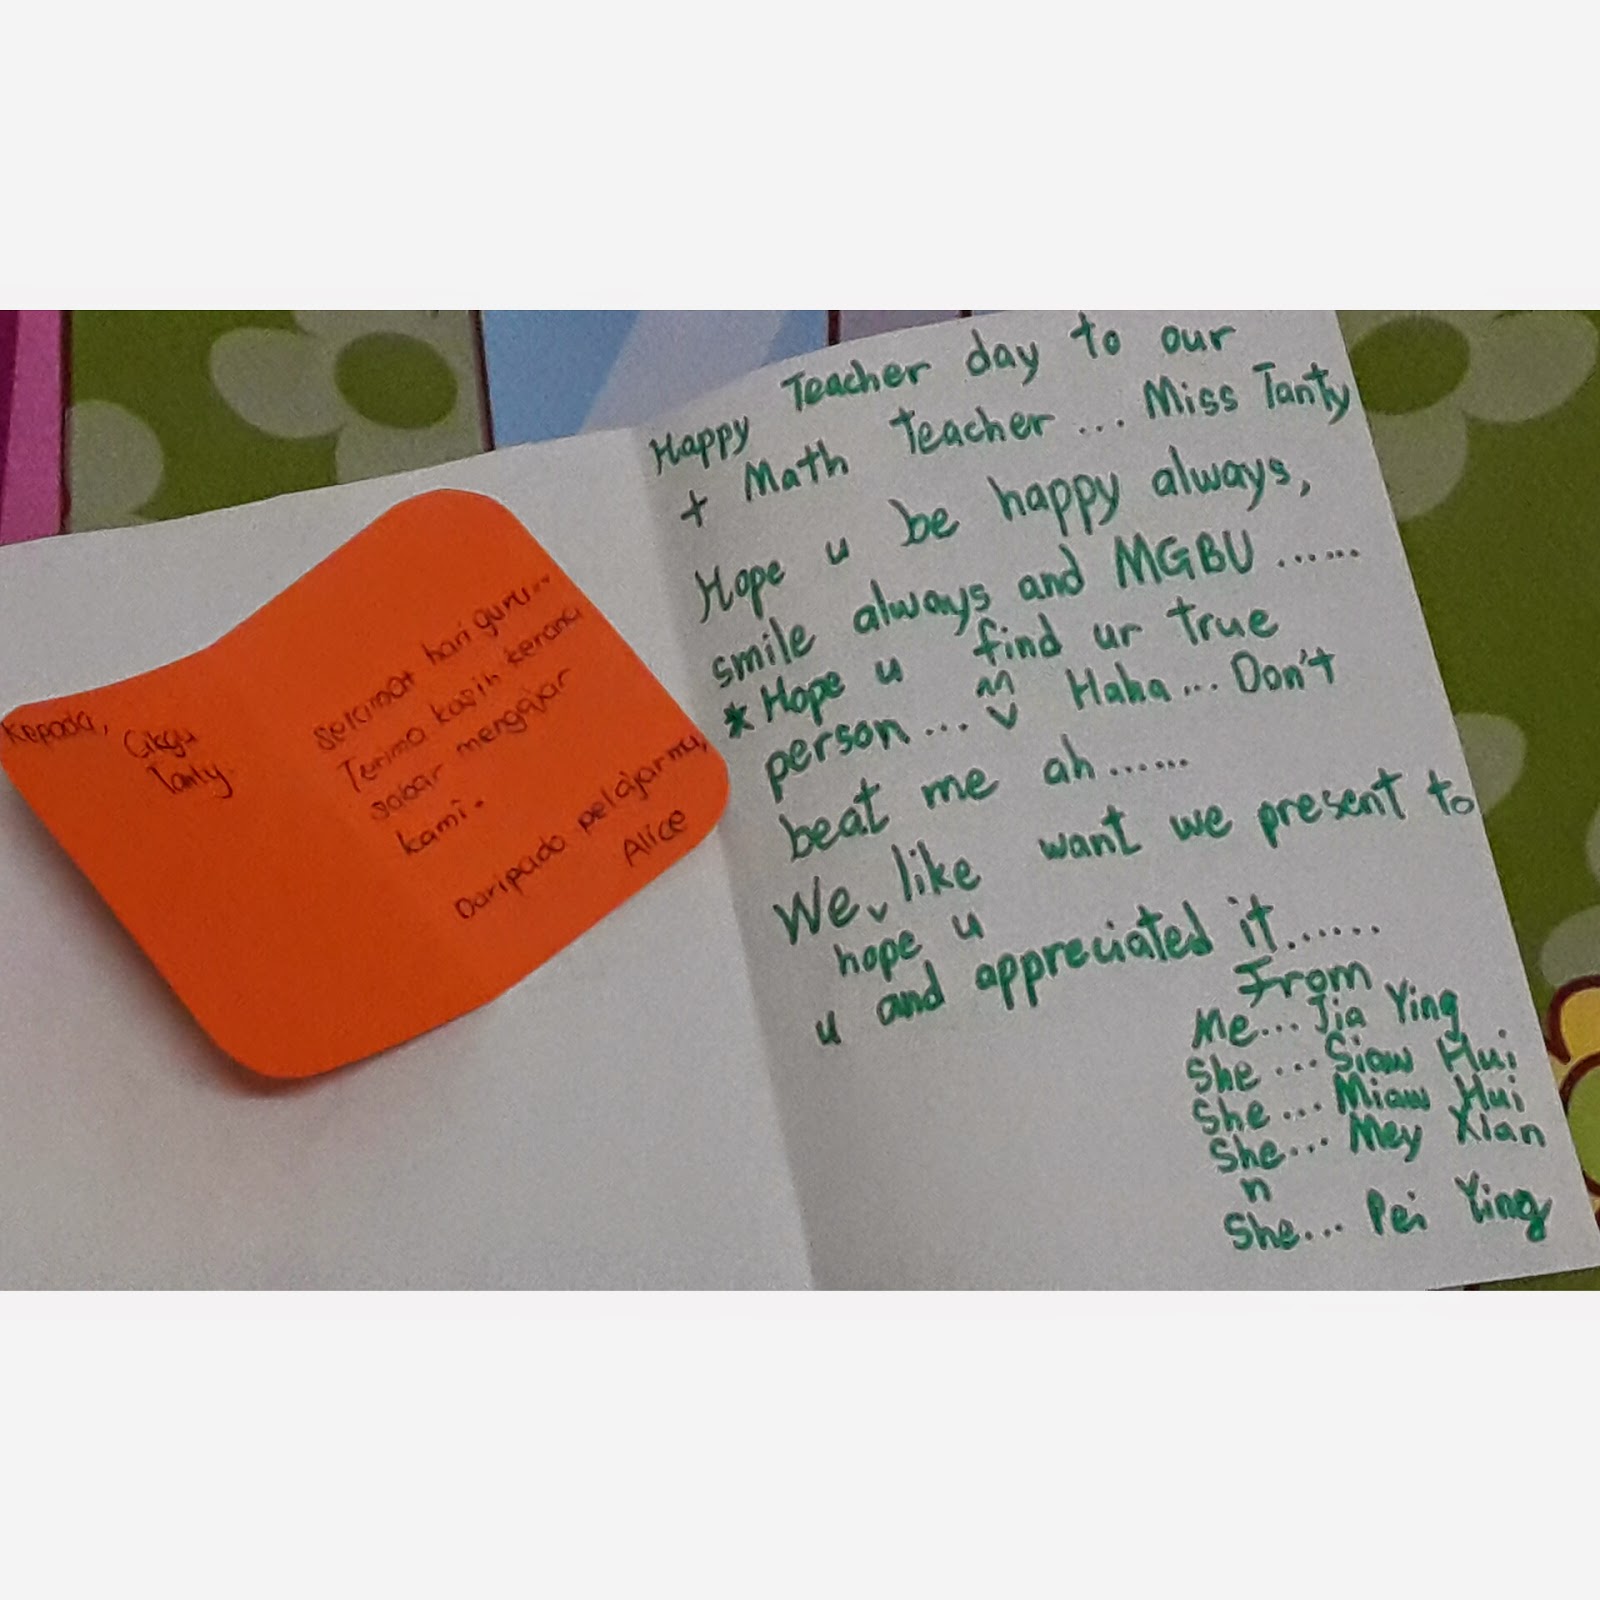 Kepada,
Cikgu
Tanty
Selamat hari guru...
Terima kasih kerana
sabar mengajar
kami.
Daripada pelajarmu,
Alice
Happy Teacher day to our
+ Math Teacher ... Miss Tanty
Hope u be happy always,
smile always and MGBU ......
*Hope u find ur true
person ... Haha ... Don't
beat me ah ......
We like want we present to
hope u
u and appreciated it ......
From
Me... Jia Ying
She ... Siaw Hui
She ... Miaw Hui
She... Mey Xian
n
She... Pei Ying